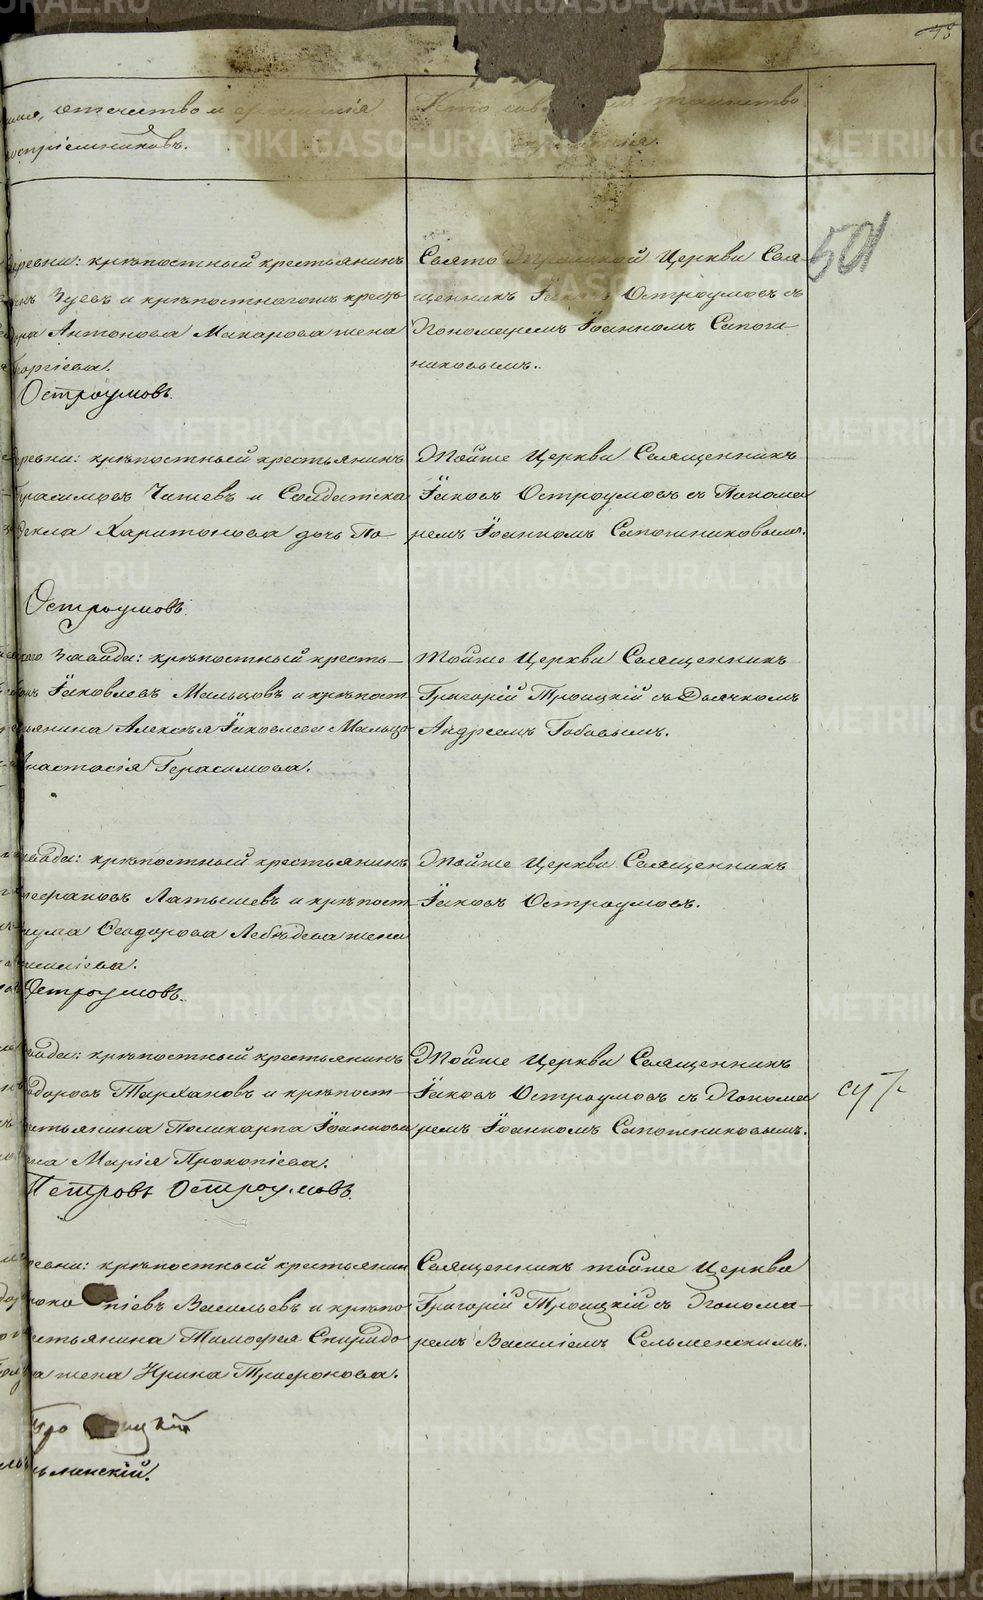 48
имя, отчество и фамилія
воспріемниковъ.
Кто совершалъ таинство
крещенія.
501
деревни: крѣпостный крестьянинъ
Зуевъ и крѣпостнаго крестья
Антонова Макарова жена
Георгіева.
Остроумовъ.
Свято Троицкой Церкви Свя-
щенникъ Іаковъ Остроумовъ съ
Пономаремъ Іоанномъ Сапож
никовымъ.
деревни: крѣпостный крестьянинъ
Герасимовъ Чишевъ и Солдатска
Фекла Харитонова дочь По
Остроумовъ.
Тойже Церкви Священникъ
Іаковъ Остроумовъ съ Понома
ремъ Іоанномъ Сапожниковымъ.
скаго Завода: крѣпостный кресть-
Іаковлевъ Мальцовъ и крѣпост
стьянина Алексѣя Іаковлева Мальцо
Анастасія Герасимова.
Тойже Церкви Священникъ
Григорій Троицкій съ Дьячкомъ
Андреемъ Бабовымъ.
завода: крѣпостный крестьянинъ
Латышевъ и крѣпост
Наума Феодорова Лебедева жена
Остроумовъ.
Тойже Церкви Священникъ
Іаковъ Остроумовъ.
завода: крѣпостный крестьянинъ
Ѳедоровъ Тархановъ и крѣпост-
крестьянина Поликарпа Іоаннова
жена Марія Прокопіева.
Петровъ Остроумовъ.
Тойже Церкви Священникъ
Іаковъ Остроумовъ съ Понома
ремъ Іоанномъ Сапожниковымъ.
деревни: крѣпостный крестьянин
Прокопіевъ Васильевъ и крѣпо
крестьянина Тимофея Спиридо
жена Ирина Трифонова.
Троицкій
Сельменскій.
Священникъ тойже Церкви
Григорій Троицкій съ Понома-
ремъ Василіемъ Сельменскимъ.
METRIKI.GASO-URAL.RU